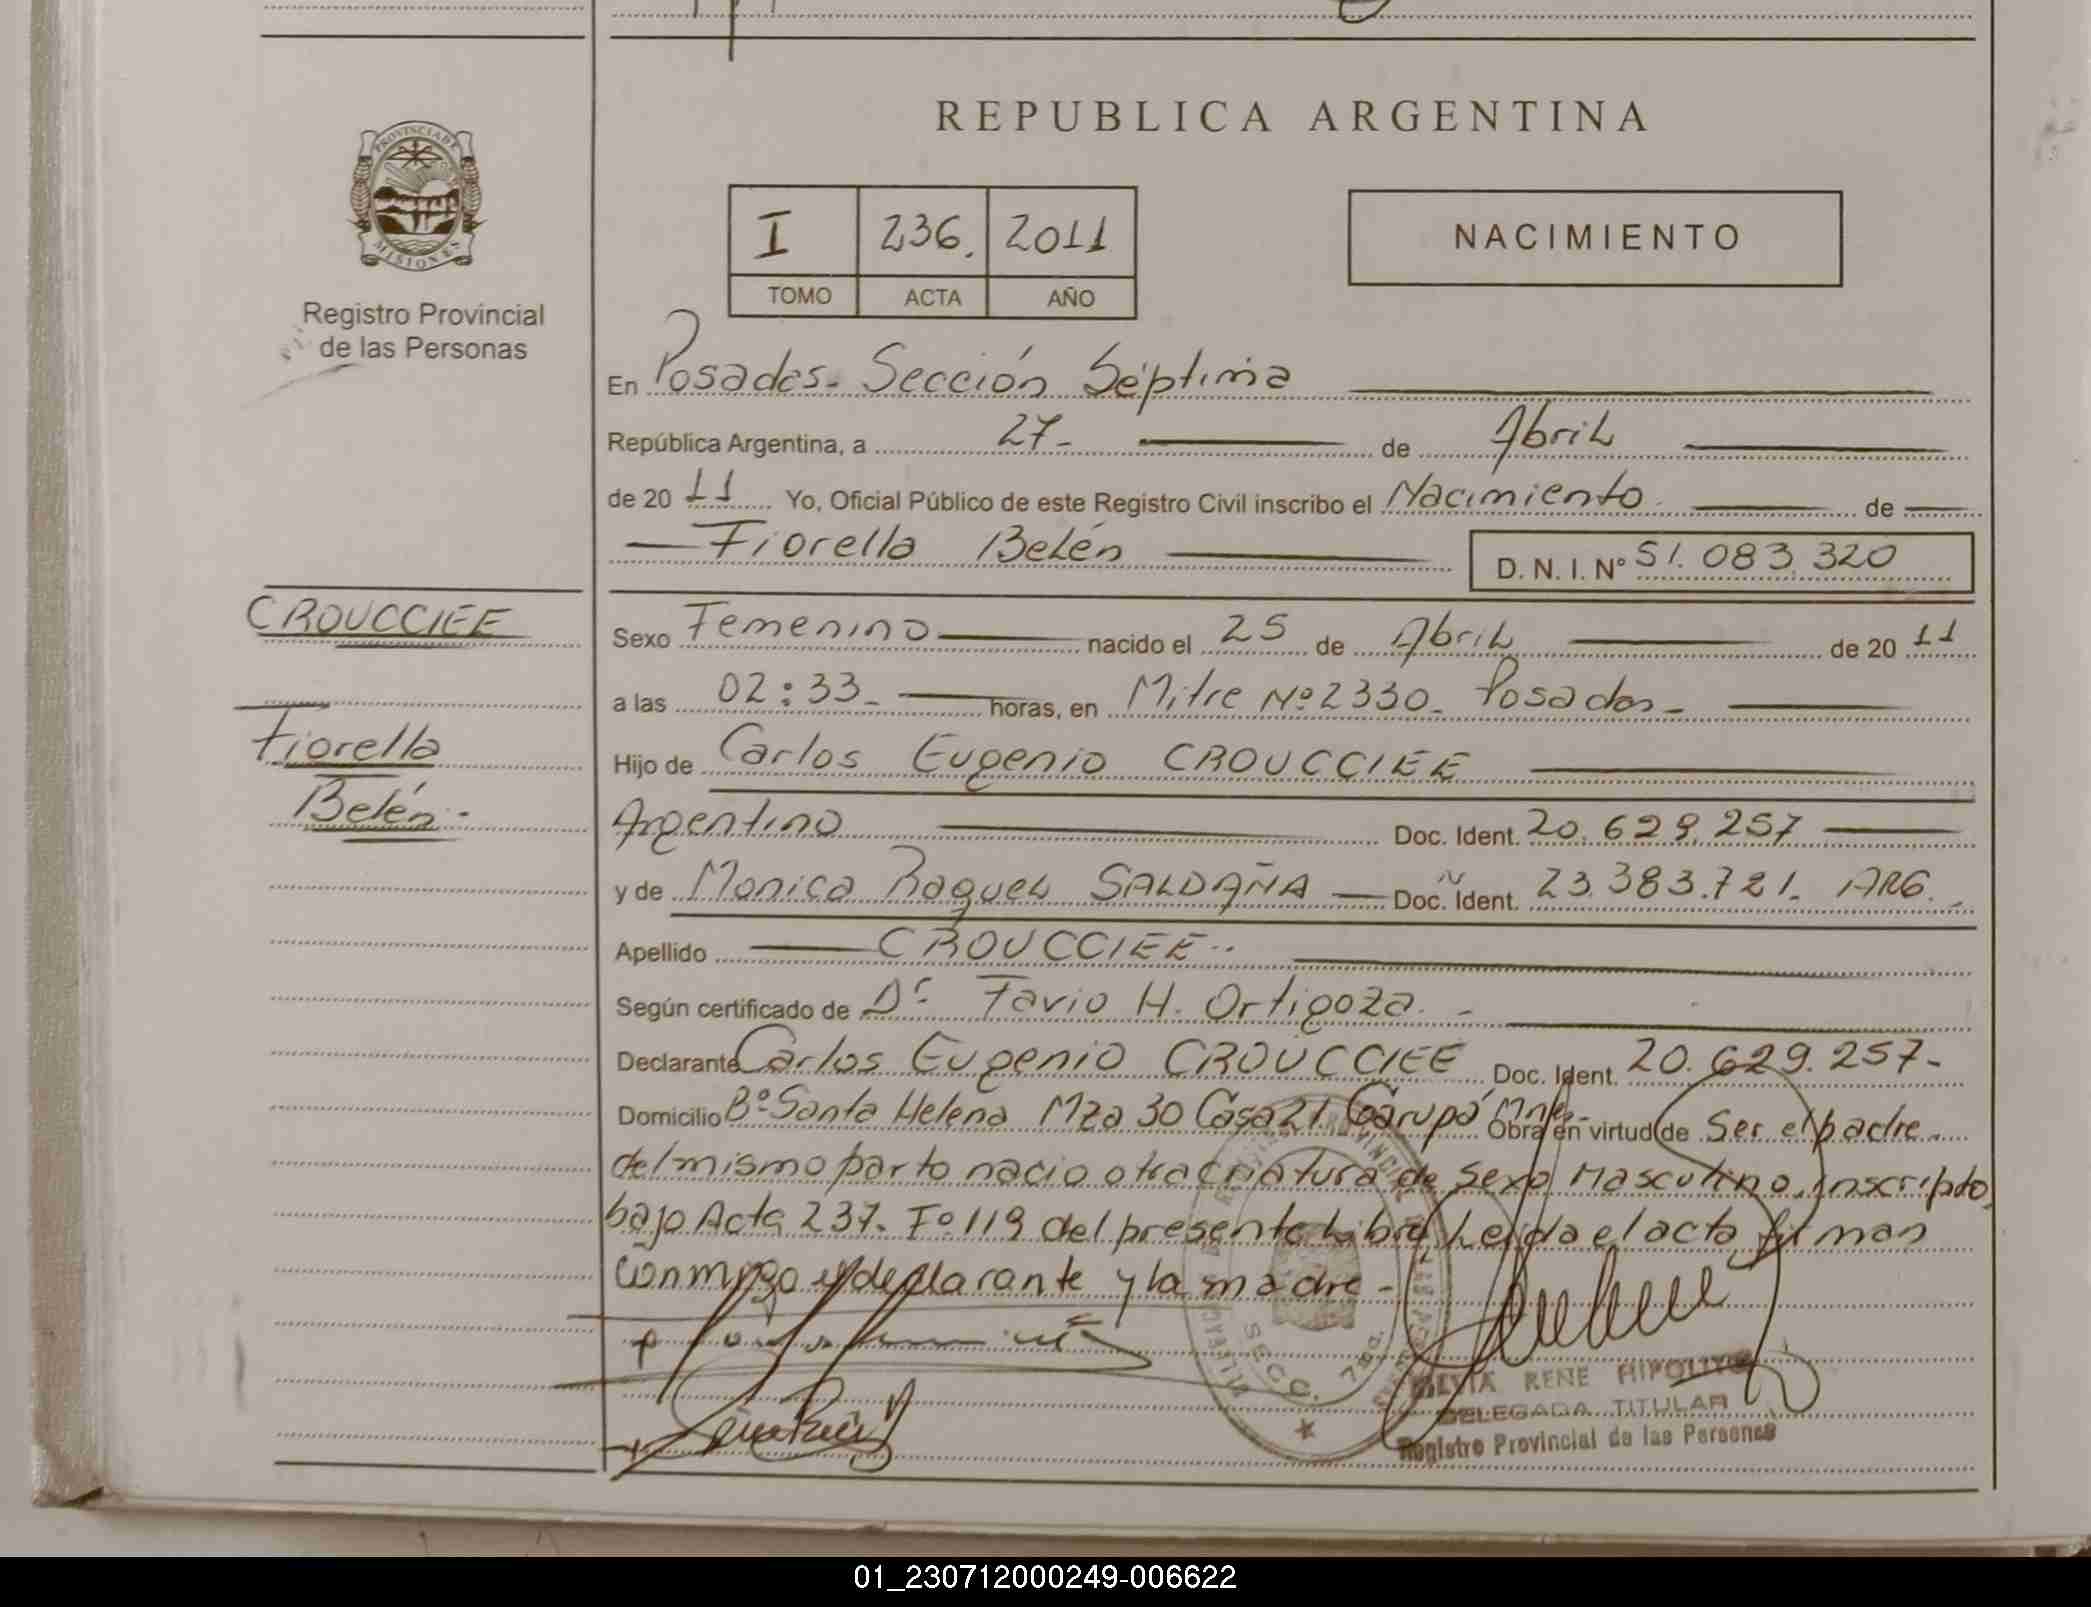 REPUBLICA ARGENTINA
PROVINCIA DE
MISIONES
Registro Provincial
de las Personas
I 236. 2011
TOMO ACTA AÑO
NACIMIENTO
En Posadas. Sección Séptima
República Argentina, a 27- de Abril
de 20 11 Yo, Oficial Público de este Registro Civil inscribo el Nacimiento de
Fiorella Belén D. N. I. Nº 51.083.320
CROUCCIEE
Fiorella
Belén.-
Sexo Femenino nacido el 25 de Abril de 20 11
a las 02:33- horas, en Mitre Nº2330- Posadas-
Hijo de Carlos Eugenio CROUCCIEE
Argentino Doc. Ident. 20.629.257
y de Monica Raquel SALDAÑA Doc. Ident. 23.383.721- ARG.-
Apellido CROUCCIEE..
Según certificado de Dr. Favio H. Ortigoza. -
Declarante Carlos Eugenio CROUCCIEE Doc. Ident. 20.629.257-
Domicilio Bº Santa Helena Mza 30 Casa 21. Garupá Mnes- Obra en virtud de Ser el padre.
del mismo parto nacio otra criatura de Sexo Masculino, inscripto,
bajo Acta 237. Fº 119 del presente Libro Leída el acta firman
Conmigo el declarante y la madre -
SECC. 7ma.
SILVIA RENE HIPOLITO
DELEGADA TITULAR
Registro Provincial de las Personas
01_230712000249-006622